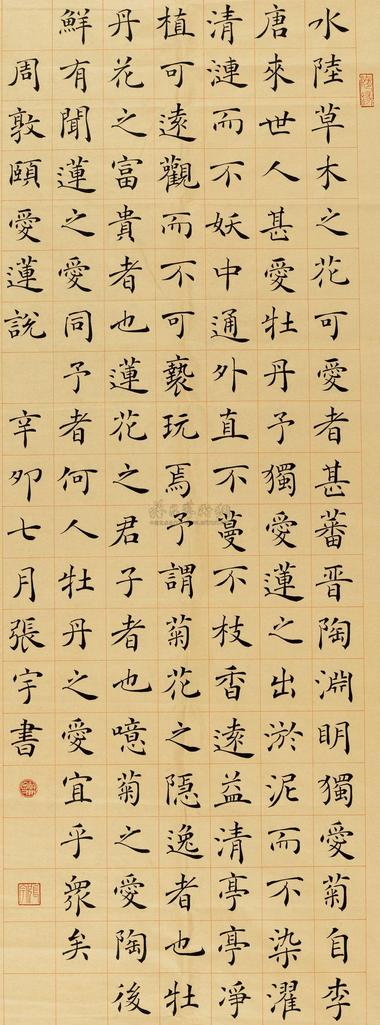 水陸草木之花可愛者甚蕃晋陶淵明獨愛菊自李
唐來世人甚愛牡丹予獨愛蓮之出淤泥而不染濯
清漣而不妖中通外直不蔓不枝香遠益清亭亭凈
植可遠觀而不可褻玩焉予謂菊花之隱逸者也牡
丹花之富貴者也蓮花之君子者也噫菊之愛陶後
鮮有聞蓮之愛同予者何人牡丹之愛宜乎衆矣
周敦頤愛蓮說 辛卯七月張宇書